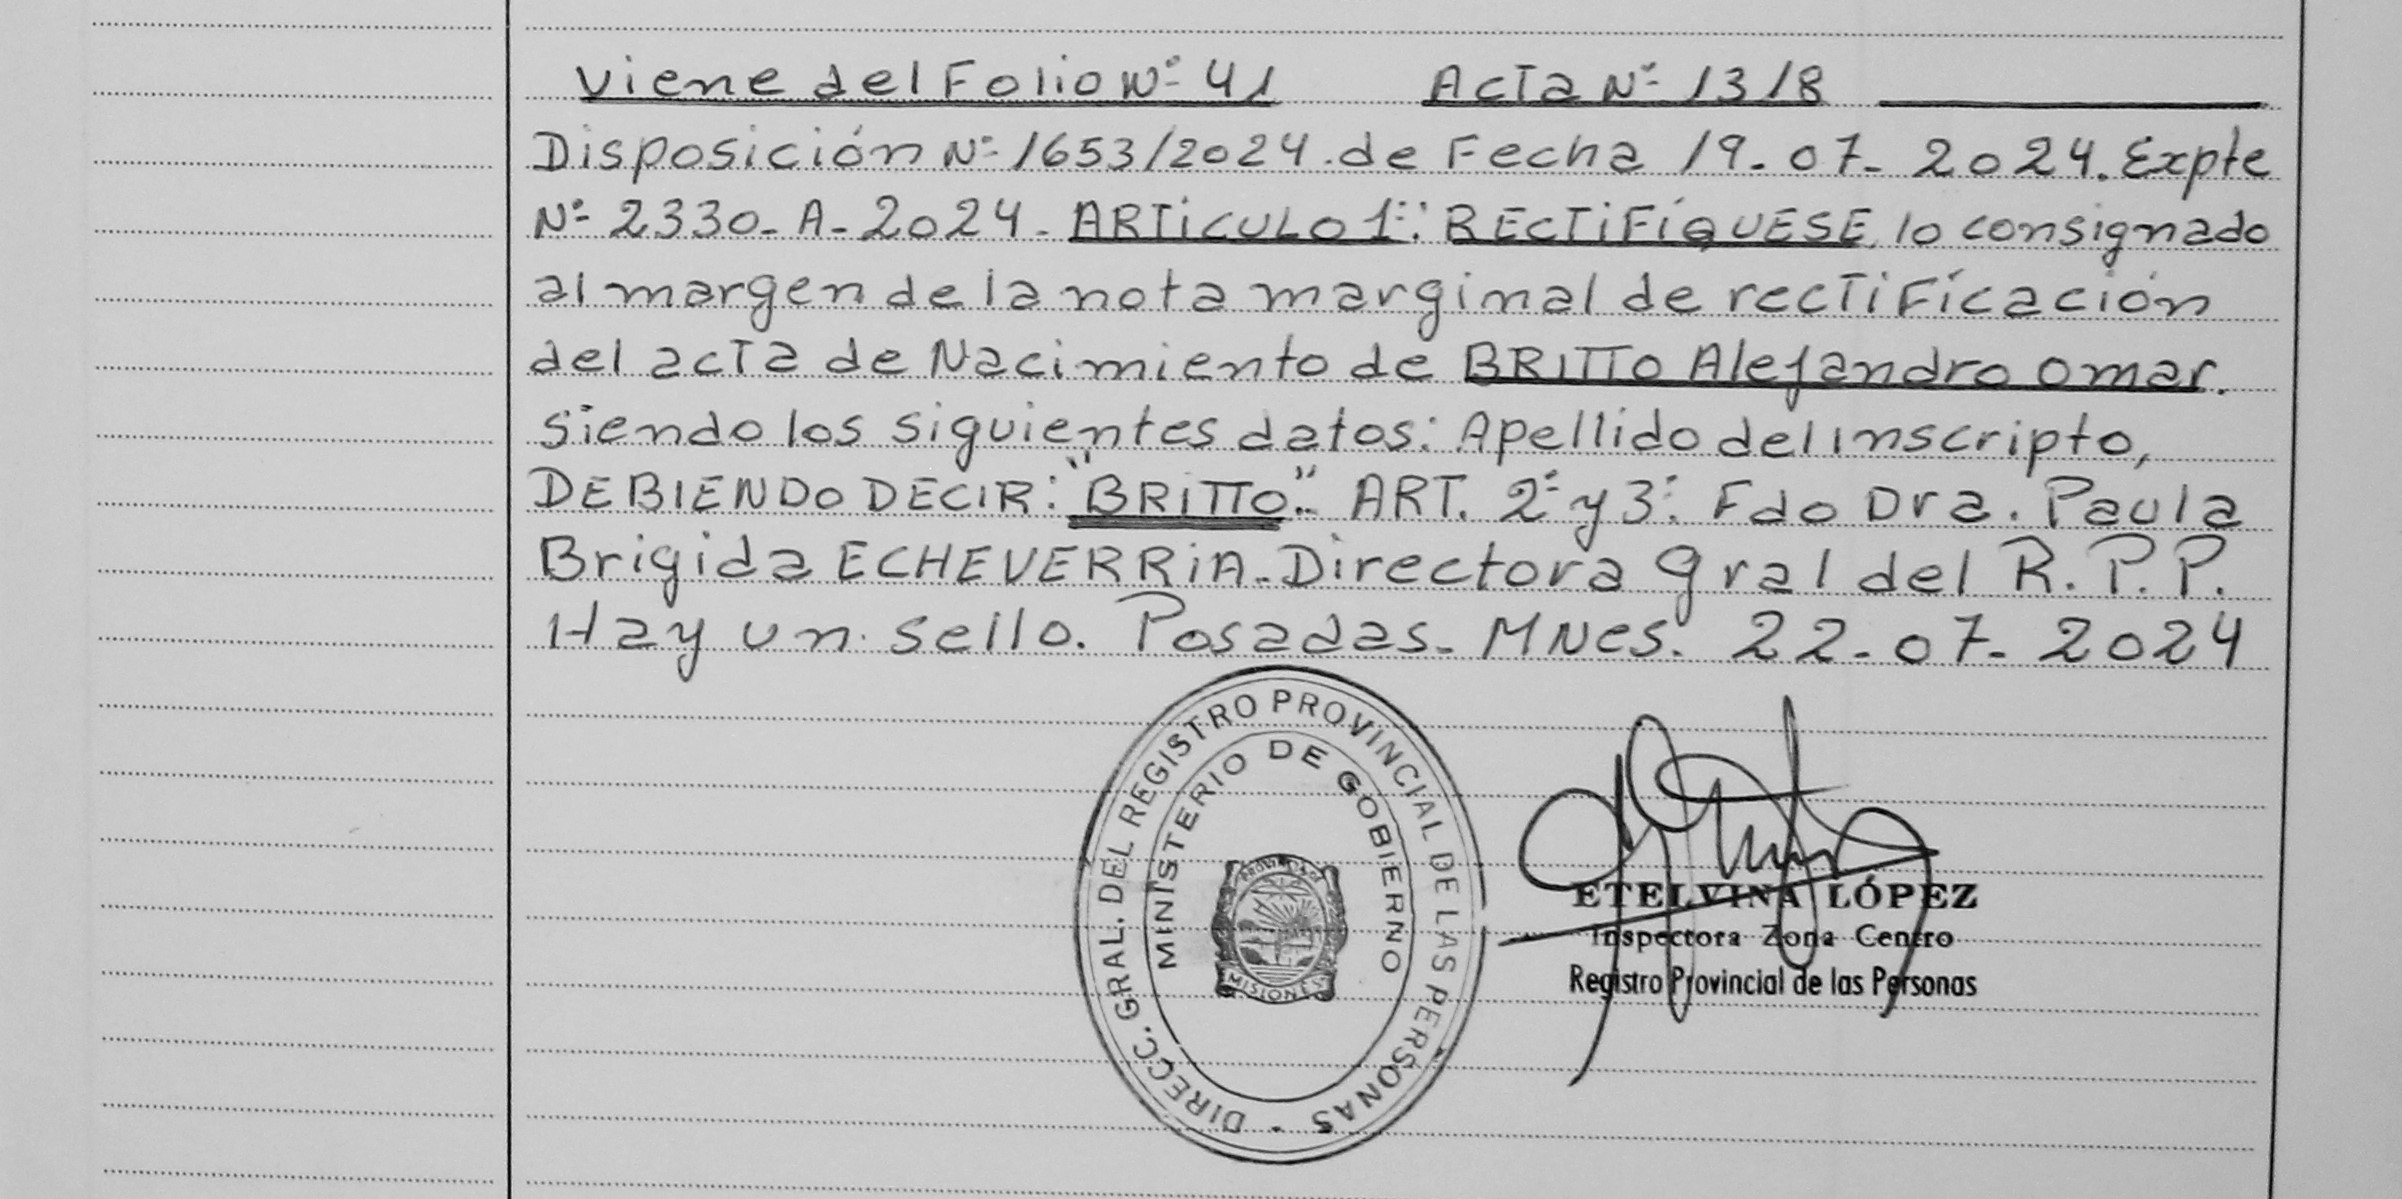 Viene del Folio Nº 41 Acta Nº 1318
Disposición Nº 1653/2024.de Fecha 19-07-2024. Expte
Nº 2330-A-2024- ARTICULO 1º: RECTIFÍQUESE, lo consignado
al margen de la nota marginal de rectificación
del acta de Nacimiento de BRITTO Alejandro Omar.
siendo los siguientes datos: Apellido del inscripto,
DEBIENDO DECIR: "BRITTO". ART. 2º y 3º. Fdo Dra. Paula
Brigida ECHEVERRIA-Directora gral del R.P.P.
Hay un sello. Posadas- MNes. 22-07-2024
DIRECC. GRAL. DEL REGISTRO PROVINCIAL DE LAS PERSONAS -
MINISTERIO DE GOBIERNO
PROVINCIA DE
MISIONES
ETELVINA LÓPEZ
Inspectora Zona Centro
Registro Provincial de las Personas